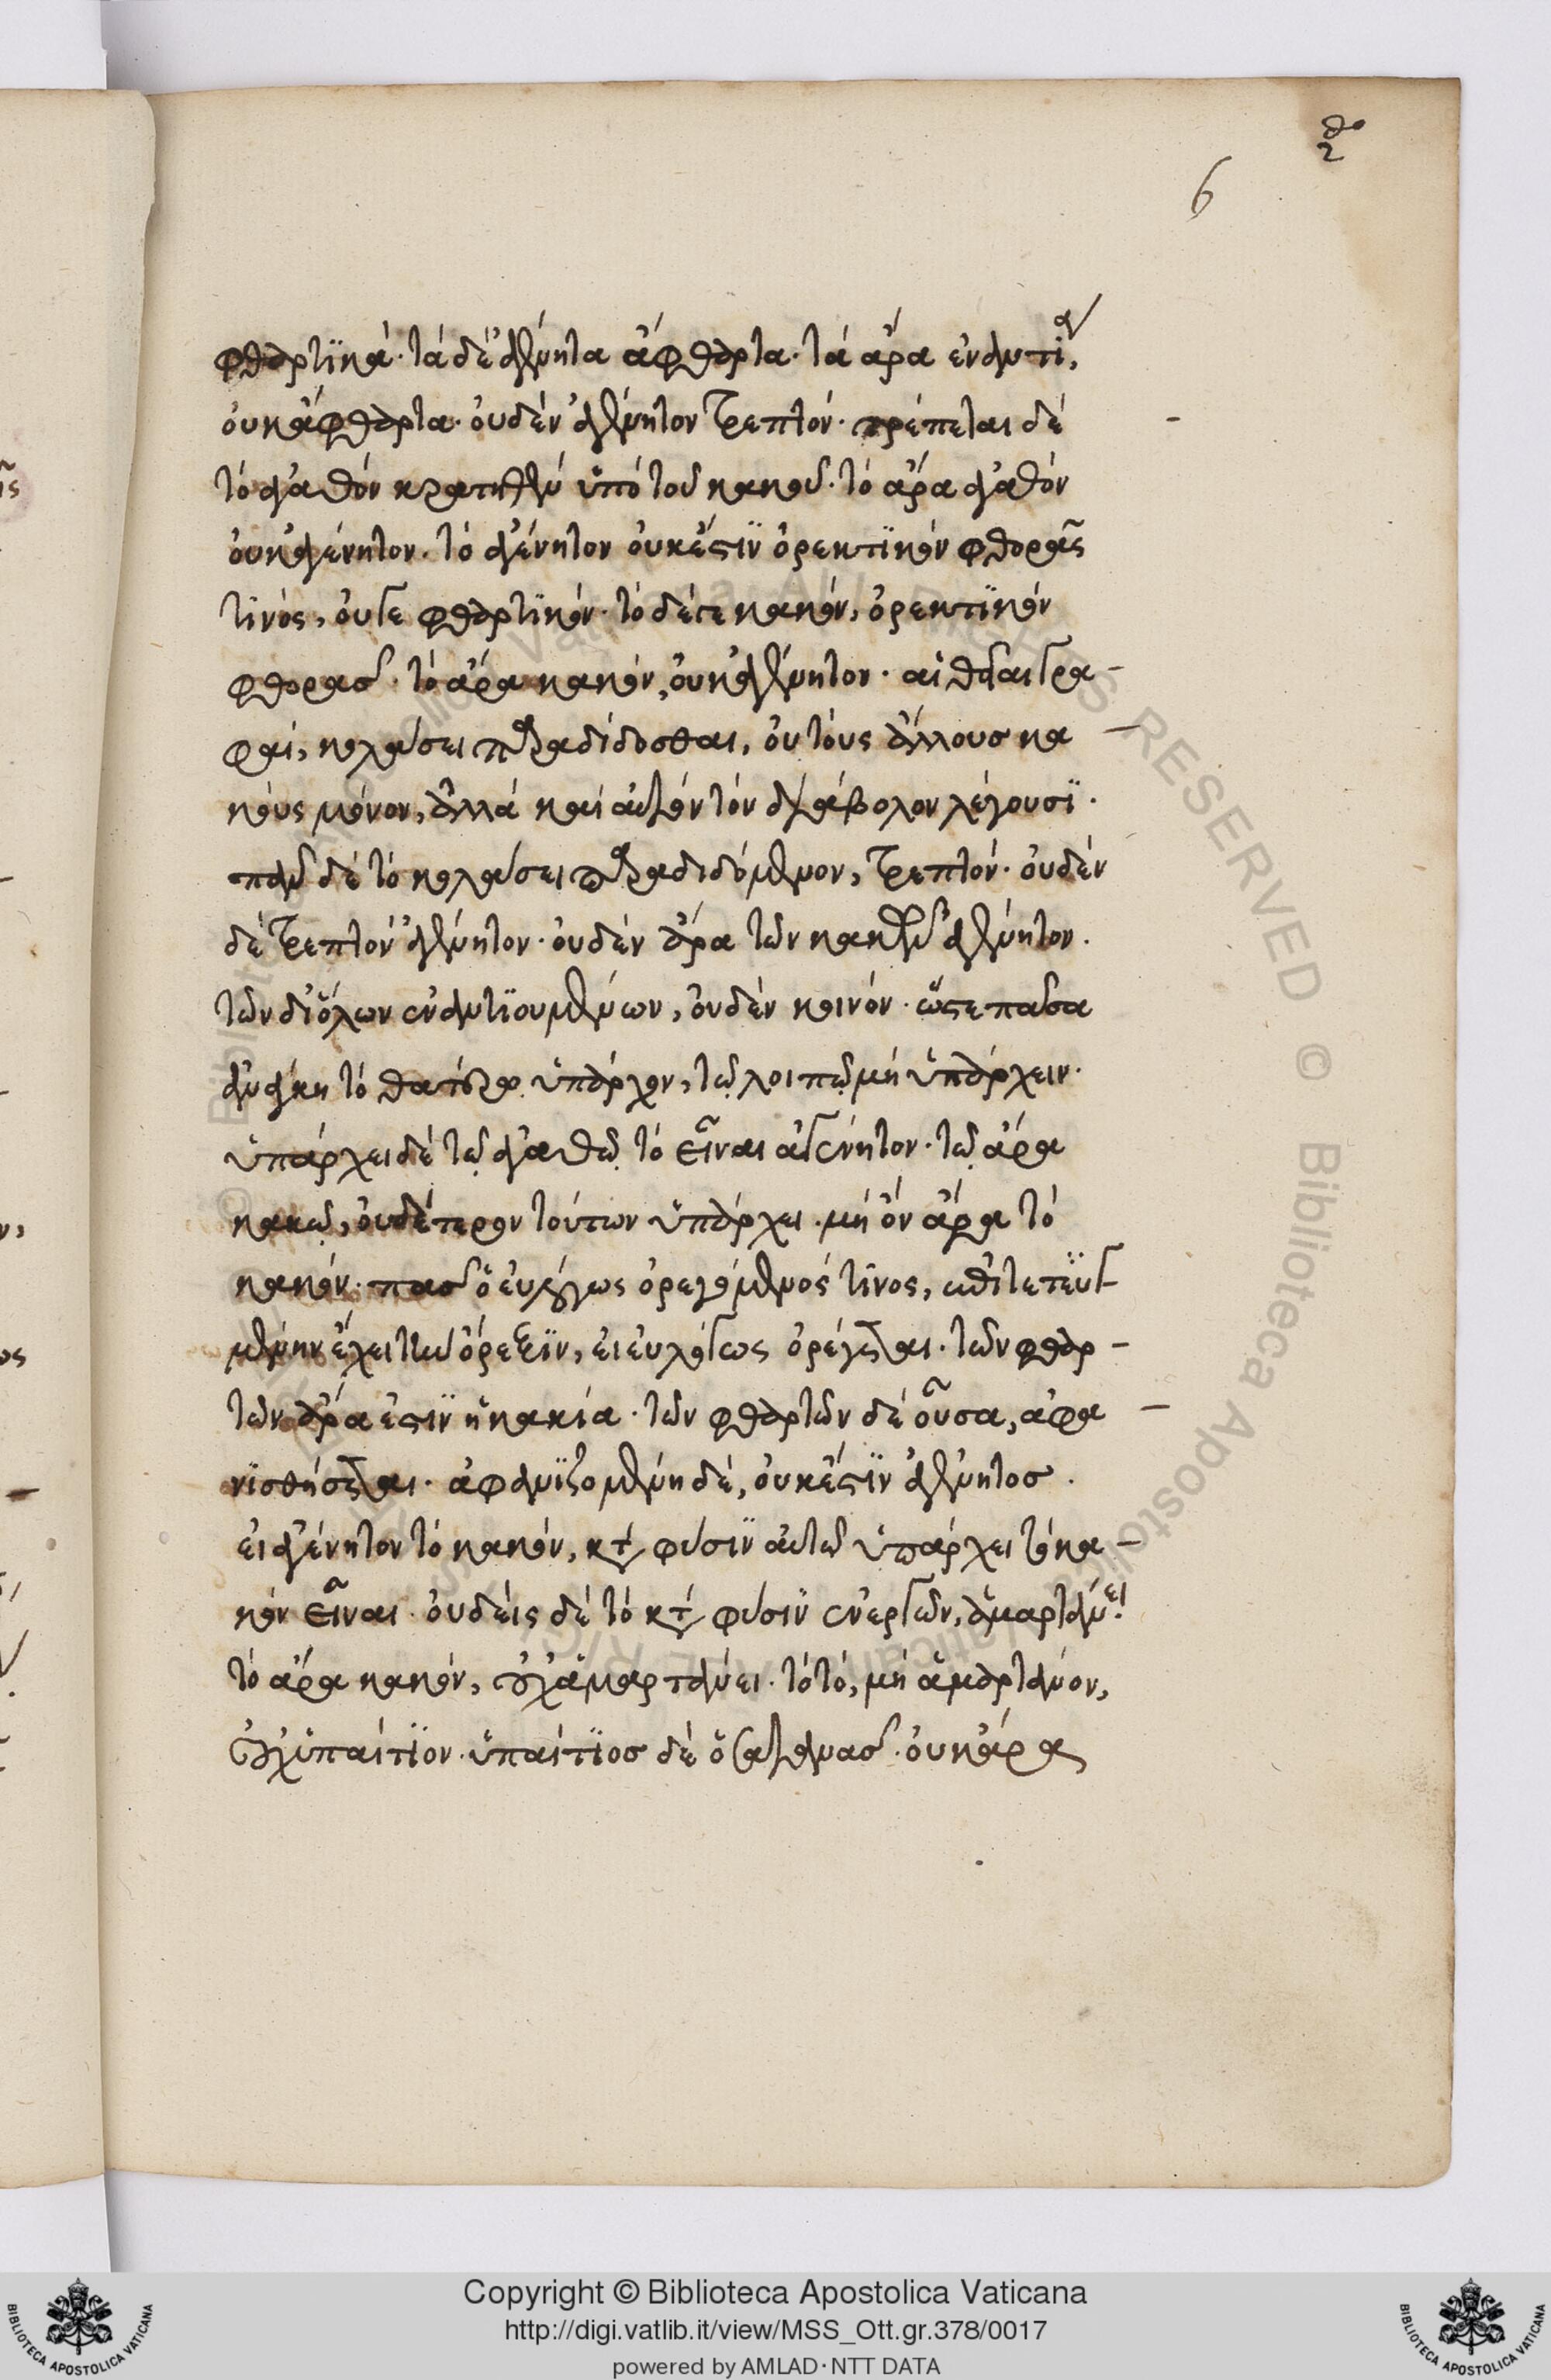 6
φθαρτϊκά· τὰ δὲ ἀγένητα ἄφθαρτα· τὰ ἄρα ἐναντία,
οὐκ ἄφθαρτα· οὐδὲν ἀγένητον τρεπτόν· τρέπεται δὲ
τὸ ἀγαθὸν κρατηθὲν ὑπὸ τοῦ κακοῦ· τὸ ἄρα ἀγαθὸν
οὐκ ἀγένητον· τὸ ἀγένητον οὐκ ἔστϊν ὀρεκτϊκὸν φθορᾶς
τινὸς, οὔτε φθαρτϊκόν· τὸ δέ γε κακὸν, ὀρεκτϊκὸν
φθορᾶς· τὸ ἄρα κακὸν, οὐκ ἀγένητον· αἱ θεῖαι γρα
φαὶ, κολάσει παραδίδοσθαι, οὐ τοὺς ἄλλους κα
κοὺς μόνον, ἀλλὰ καὶ αὐτὸν τὸν διάβολον λέγουσϊ·
πᾶν δὲ τὸ κολάσει παραδιδόμενον, τρεπτόν· οὐδὲν
δὲ τρεπτὸν ἀγένητον· οὐδὲν ἄρα τῶν κακῶν ἀγένητον·
τῶν διόλων ἐναντϊουμένων, οὐδὲν κοινόν· ὥστε πᾶσα
ἀνάγκη τὸ θατέρῳ ὑπάρχον, τῷ λοιπῷ μὴ ὑπάρχειν·
ὑπάρχει δὲ τῷ ἀγαθῷ τὸ εἶναι ἀγένητον· τῷ ἄρα
κακῷ, οὐδέτερον τούτων ὑπάρχει· μὴ ὂν ἄρα τὸ
κακόν· πᾶς ὁ εὐλόγως ὀρεγόμενός τϊνος,
μένην ἔχει τὴν ὄρεξϊν, εἰ εὐλόγως ὀρέγεται· τῶν φθαρ
τῶν ἄρα ἐστϊν ἡ κακία· τῶν φθαρτῶν δὲ οὖσα, ἀφα
νϊσθήσεται· ἀφανϊζομένη δὲ, οὐκ ἔστϊν ἀγένητος·
εἰ ἀγένητον τὸ κακὸν, κατὰ φύσϊν αὐτῶ ὑπάρχει τὸ κα
κὸν εἶναι· οὐδεὶς δὲ τὸ κατὰ φύσϊν ἐνεργῶν, ἁμαρτάνει·
τὸ ἄρα κακὸν, οὐχ ἁμαρτάνει· τὸ τὸ, μὴ ἁμαρτάνον,
οὐχ ὑπαίτϊον· ὑπαίτϊος δὲ ὁ σατανᾶς· οὐκ ἄρα
Copyright © Biblioteca Apostolica Vaticana
http://digi.vatlib.it/view/MSS_Ott.gr.378/0017
powered by AMLAD · NTT DATA